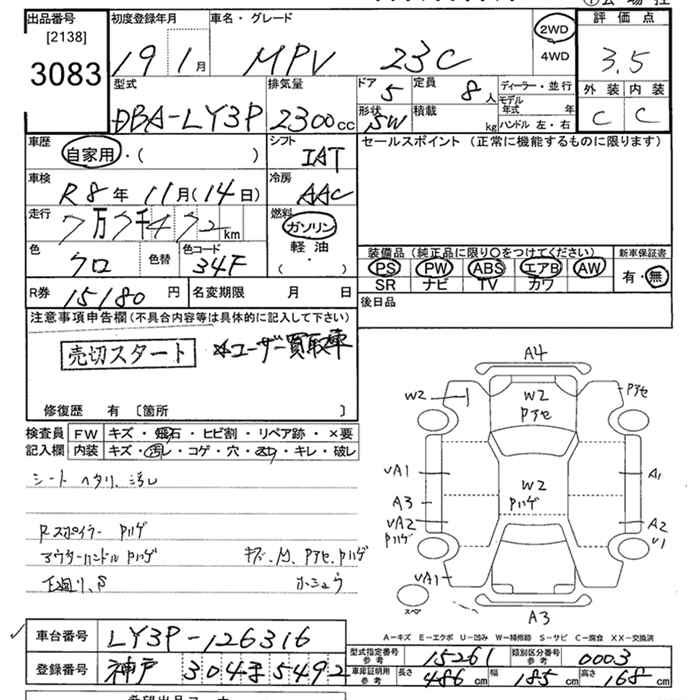 出品番号
[2138]
3083
初度登録年月
19 1 月
車名・グレード
MPV 23C
2WD
4WD
評価点
3.5
型式
DBA-LY3P
排気量
2300 cc
ドア
5
定員
8 人
ディーラー・並行
モデル年式 年
外装 内装
C C
形状
SW
積載 kg
ハンドル 左・右
車歴
自家用・( )
シフト
IAT
セールスポイント (正常に機能するものに限ります)
車検
R8年 11月(14日)
冷房
AAC
走行
7万7千472 km
燃料
ガソリン
軽油
( ・ )
色
クロ
色替
色コード
34F
装備品(純正品に限り○をつけてください)
新車保証書
PS PW ABS エアB AW
有・無
SR ナビ TV カワ
R券 15180 円
名変期限 月 日
後日品
注意事項申告欄(不具合内容等は具体的に記入して下さい)
売切スタート
*ユーザー買取車
修復歴 有 〔箇所 〕
検査員 FW キズ・飛石・ヒビ割・リペア跡・×要
記入欄 内装 キズ・汚レ・コゲ・穴・スリ・キレ・破レ
シート ヘタリ、汚レ
Rスポイラー Pハゲ
アウターハンドル Pハゲ
キズ、M、Pアセ、Pハゲ
下廻り、S
ホシュウ
A4
W2
W2
Pアセ
Pアセ
UA1
W2
Pハゲ
A1
A3
UA2
Pハゲ
A2
U1
UA1
スペ
A3
A－キズ E－エクボ U－凹み W－補修跡 S－サビ C－腐食 XX－交換済
車台番号
LY3P-126316
型式指定番号
参考
15261
類別区分番号
参考
0003
登録番号
神戸 304 ま 5492
車庫証明用
参考
長さ 486 cm
幅 185 cm
高さ 168 cm